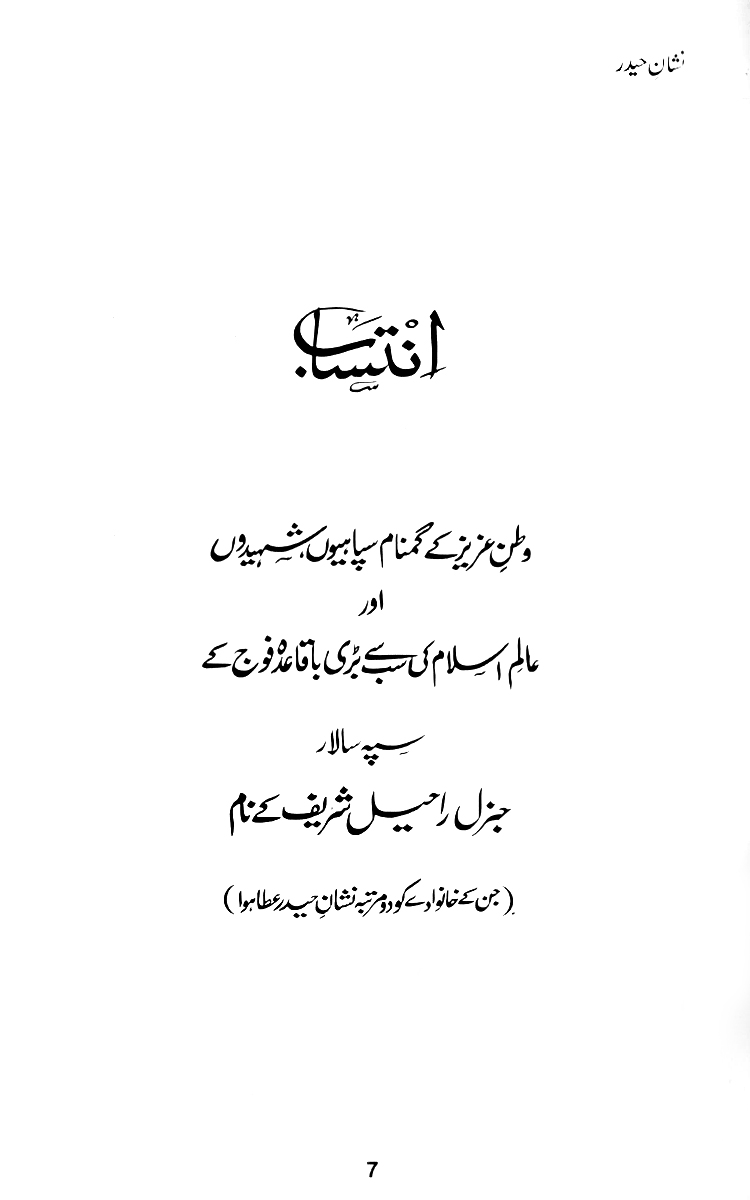 نشان حیدر
اِنْتساب
وطنِ عزیز کے گمنام سپاہیوں، شہیدوں
اور
عالمِ اسلام کی سب سے بڑی باقاعدہ فوج کے
سپہ سالار
جنرل راحیل شریف کے نام
(جن کے خانوادے کو دو مرتبہ نشانِ حیدر عطا ہوا)
7